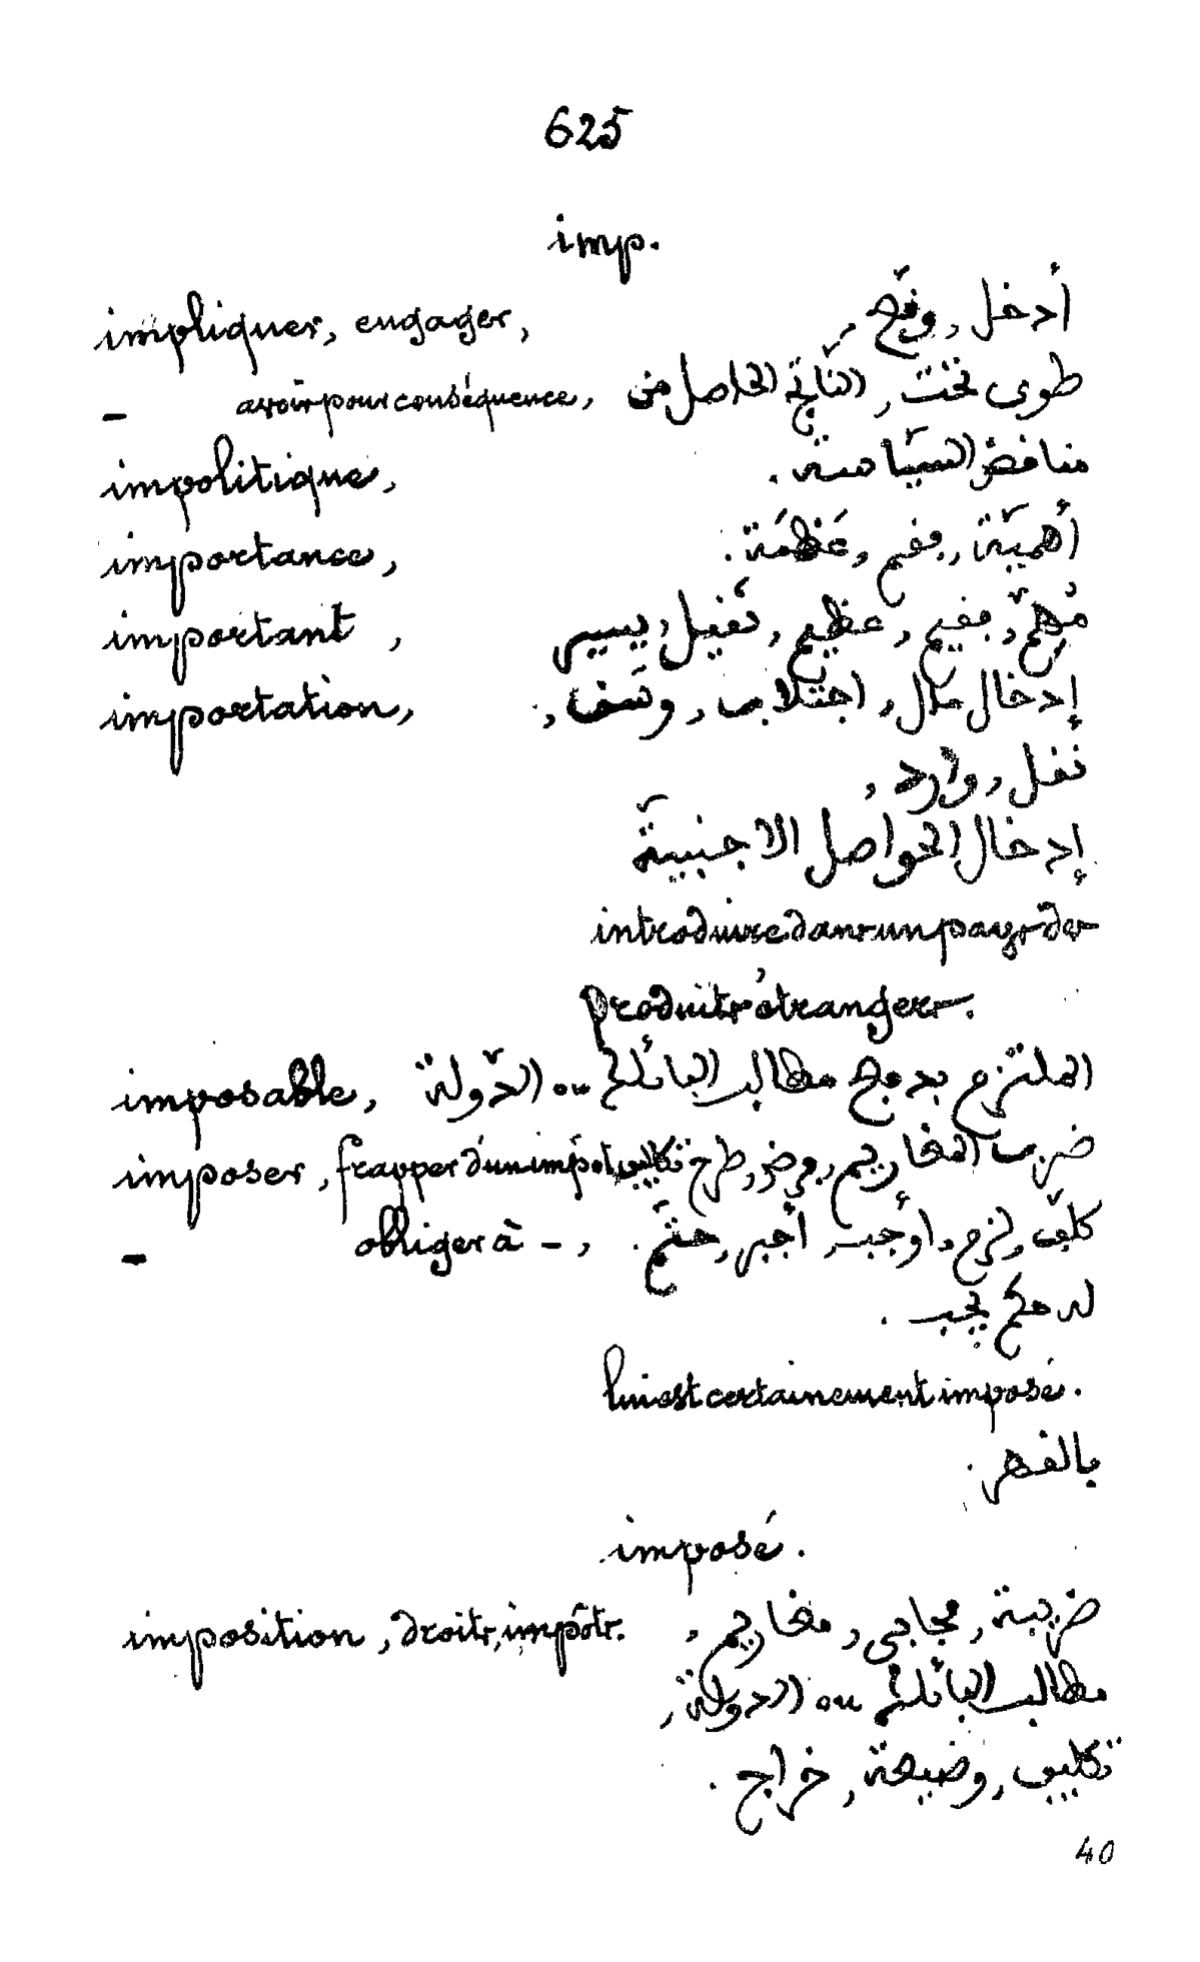 625
imp.
impliquer, engager, أدخل, وقّع,
— avoir pour conséquence, طوى تحت, النّاتج الحاصل من
impolitique, مناقض السّياسة.
importance, أهميّة, عَظَمَة.
important, مُهِمّ, عظيم, ثقيل,
importation, إدخال مال, اجتلاب,
نقل, وارد,
إدخال الحواصل الاجنبيّة
introduire dans un pays des
produits étrangers.
imposable, الملتزم بدفع مطالب البائلك ou الدّولة
imposer, frapper d'un impôt ضرب المغاريم, طرح تكليف
— obliger à –, كلّف, لزم, أوجب, أجبر, حتّم.
له حكم يجب.
lui est certainement imposé.
بالقهر.
imposé.
imposition, droits, impôts. ضريبة, مجابى, مغاريم,
مطالب البائلك ou الدولة,
تكليف, وضيعة, خراج.
40